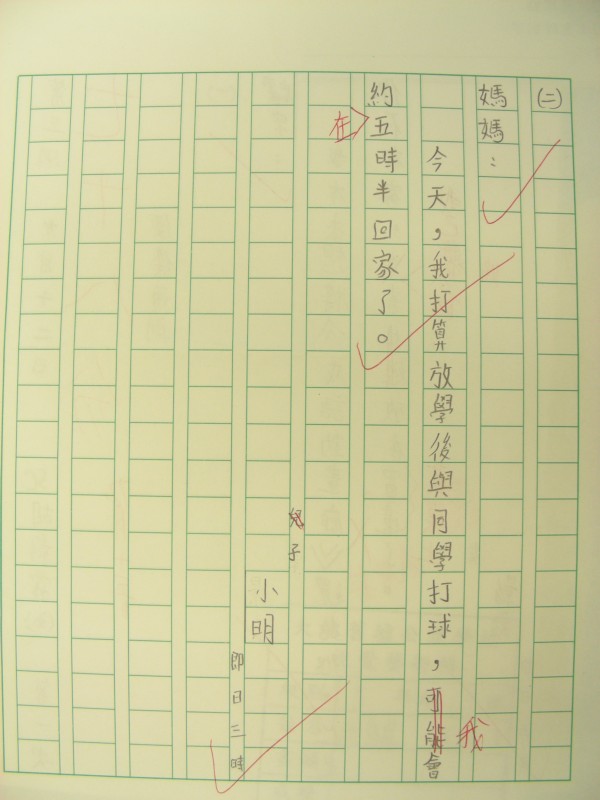 (二)
媽媽：
今天，我打算放學後與同學打球，可能會
我
約五時半回家了。
在
兒子
小明
即日三時